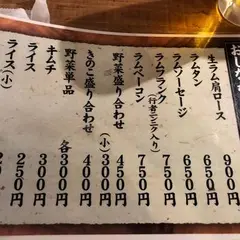 おしながき
生ラム肩ロース 900円
ラムタン 650円
ラムソーセージ 650円
ラムフランク(行者ニンニク入り) 750円
ラムベーコン 750円
野菜盛り合わせ 450円
(小) 300円
きのこ盛り合わせ 300円
野菜単品 各300円
キムチ 300円
ライス 250円
ライス(小)